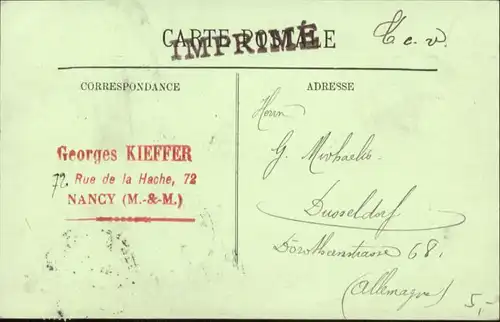 CARTE POSTALE
IMPRIMÉ
T.c.v.
CORRESPONDANCE
ADRESSE
Georges KIEFFER
72, Rue de la Hache, 72
NANCY (M.-&-M.)
Herrn
G. Michaelis
Dusseldorf
Dorotheenstrasse 68.
(Allemagne)
5,-